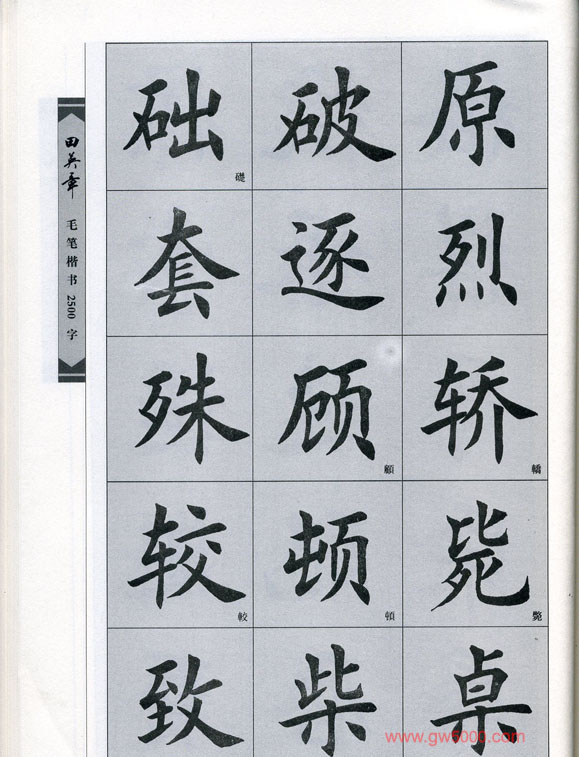 田英章 毛笔楷书2500字
础 破 原
礎
套 逐 烈
殊 顾 轿
顧 轎
较 顿 毙
較 頓 斃
致 柴 桌
www.gw5000.com